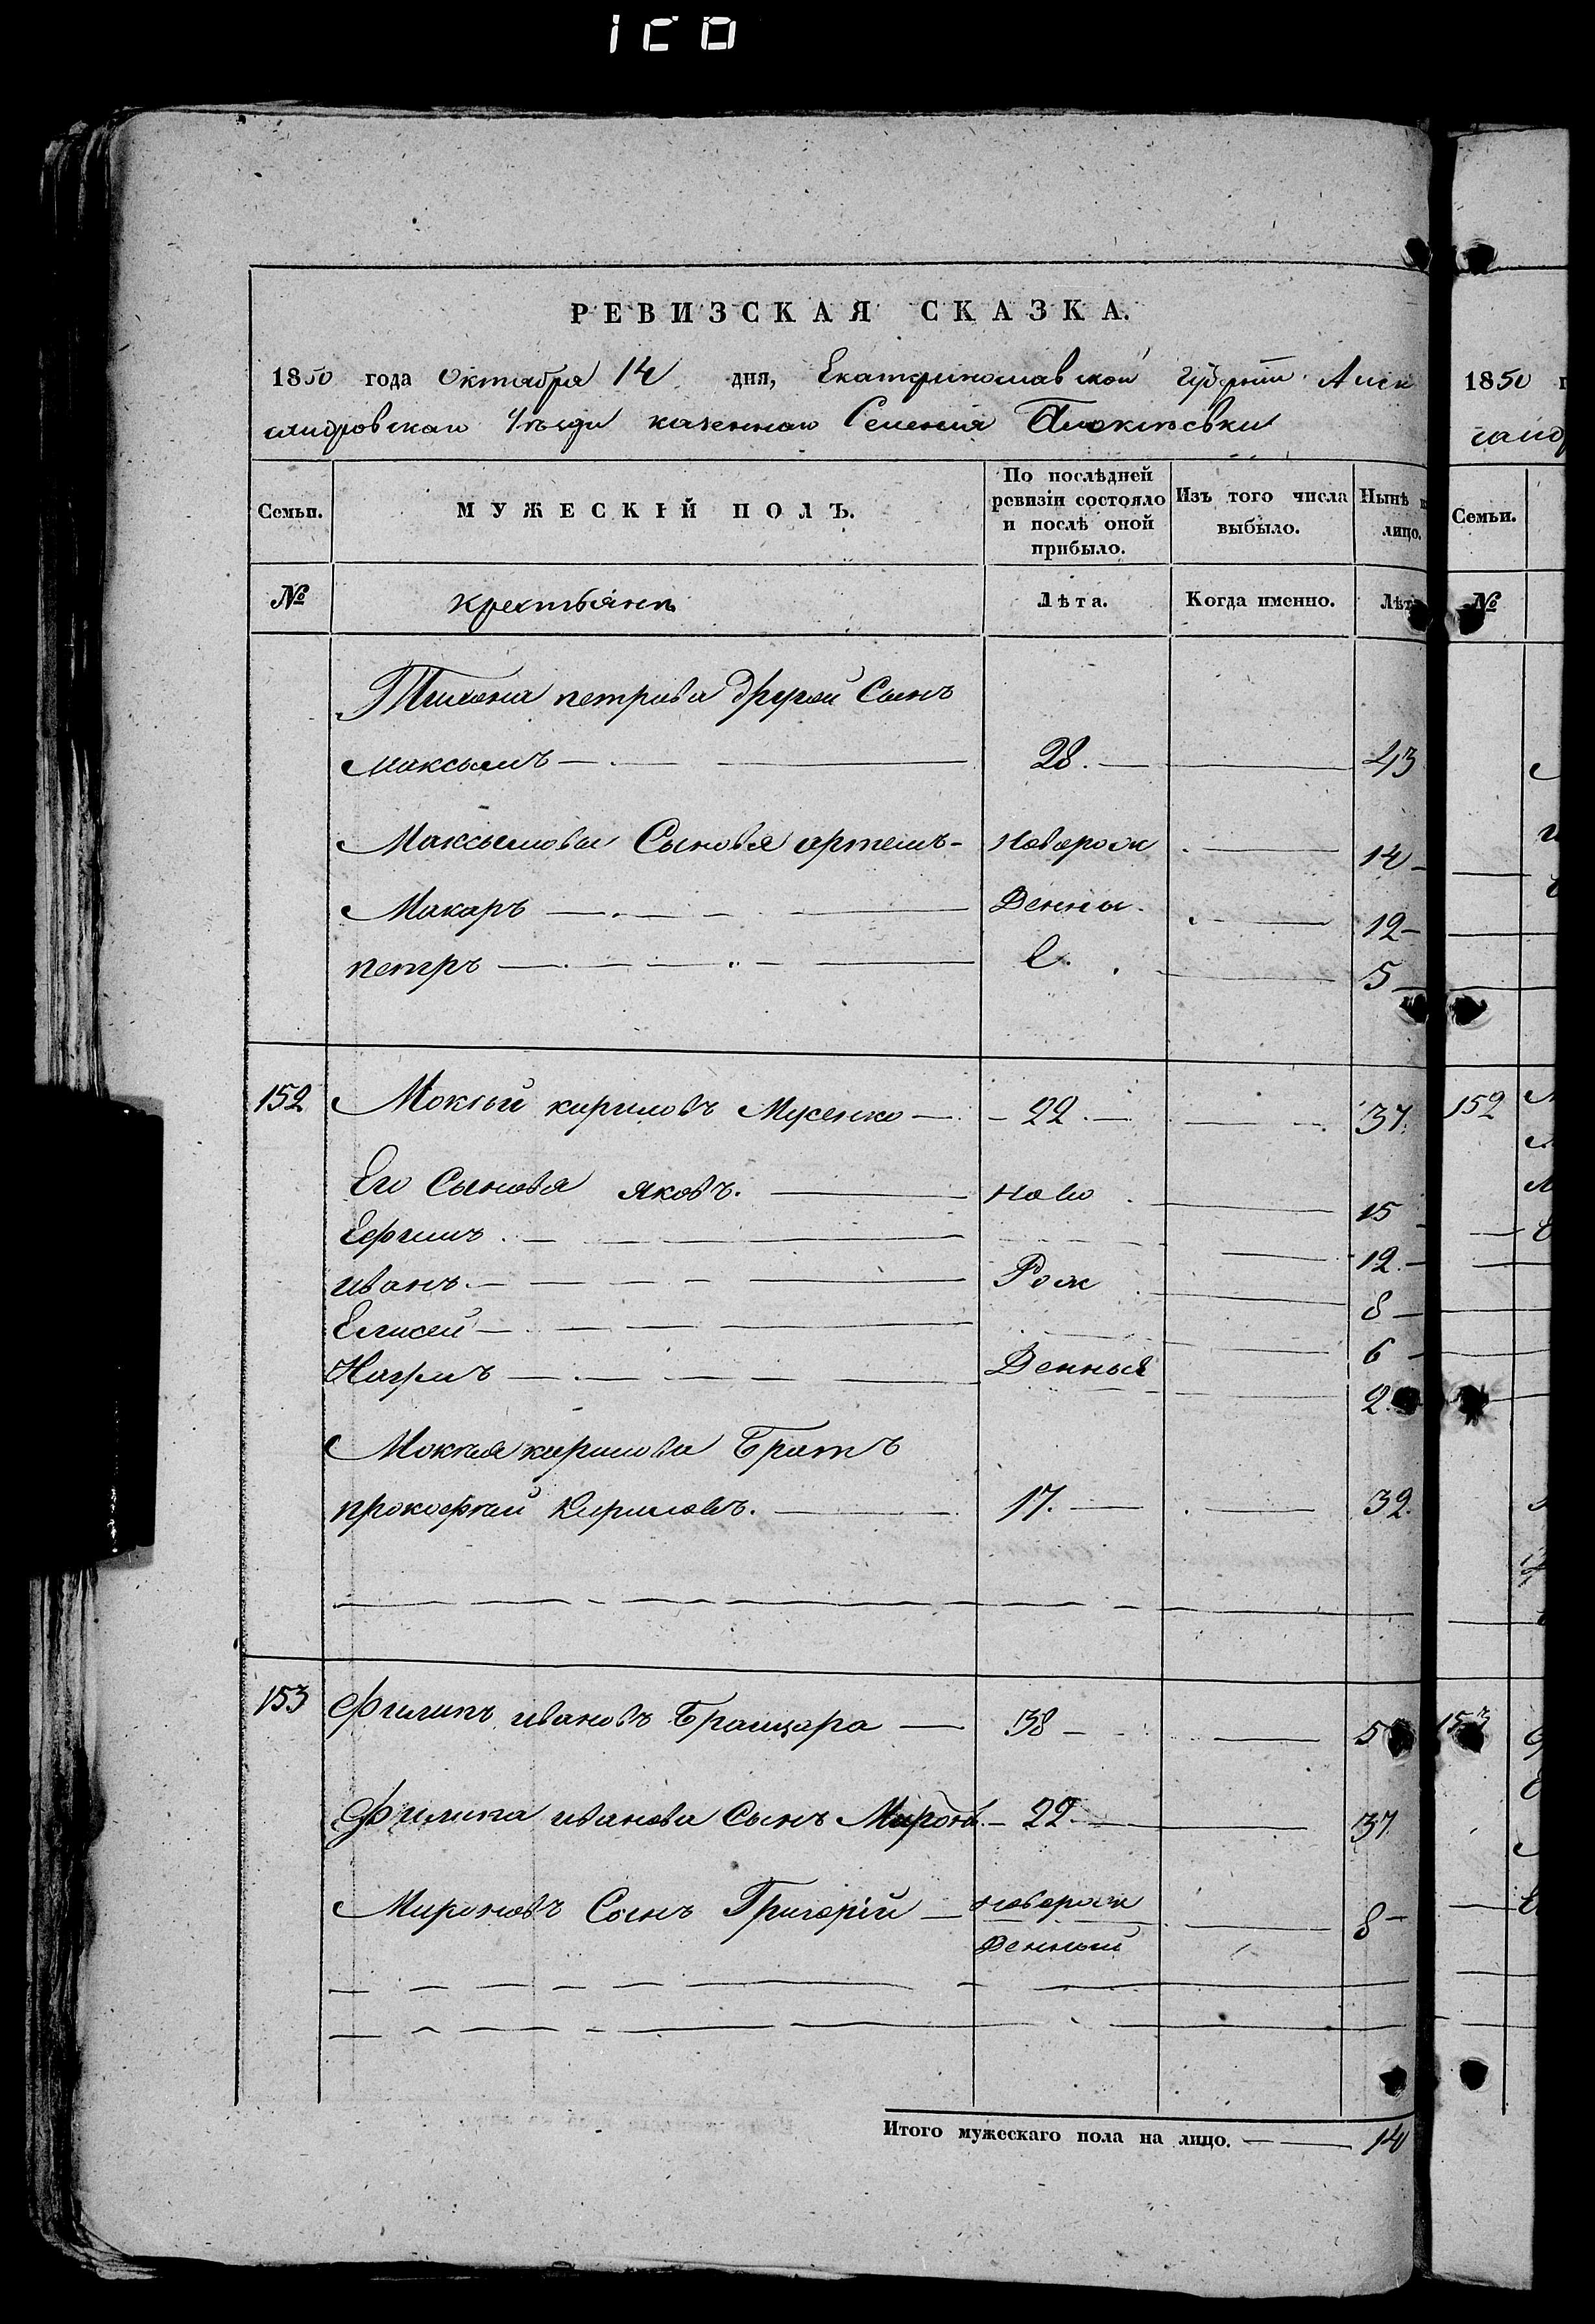 РЕВИЗСКАЯ СКАЗКА.
1850 года Октября 14 дня, Екатеринославской Губерніи Алек
сандровскаго Уѣзда казеннаго Селенія
Семьи. МУЖЕСКІЙ ПОЛЪ. По послѣдней ревизіи состояло и послѣ оной прибыло. Изъ того числа выбыло. Нынѣ лицо.
№ крестьяне Лѣта. Когда именно. Лѣт
Тихона петрова другой Сынъ
максымъ 28. 43
Максымовы Сыновья артемъ новорож 14
Макаръ Денны 12
петръ е. 5
152 Мокій кириловъ Мусенко 22 37
Его Сыновья яковъ. ново 15
Ефимъ 12
иванъ Рож 8
Елисей 6
Наумъ Денныя 2
Мокія кирилова Братъ
прокофій Кириловъ. 17. 32
153 Филипъ ивановъ 38 5
Филипа иванова Сынъ Миронъ 22 37
Мироновъ Сынъ Григорій новорож 8
Денный
Итого мужескаго пола на лицо. 14
1850
санд
Семьи.
№
152
153